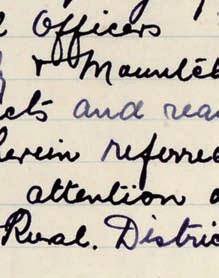 Officers
& Mounted
cts and rea
herein referred
attention
Rural. Distric